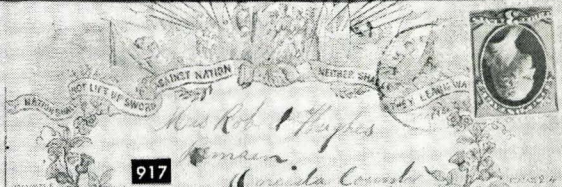 NATION SHALL NOT LIFT UP SWORD AGAINST NATION NEITHER SHALL THEY LEARN WAR
Mrs Rob Hughes
Remsen
Oneida County
917